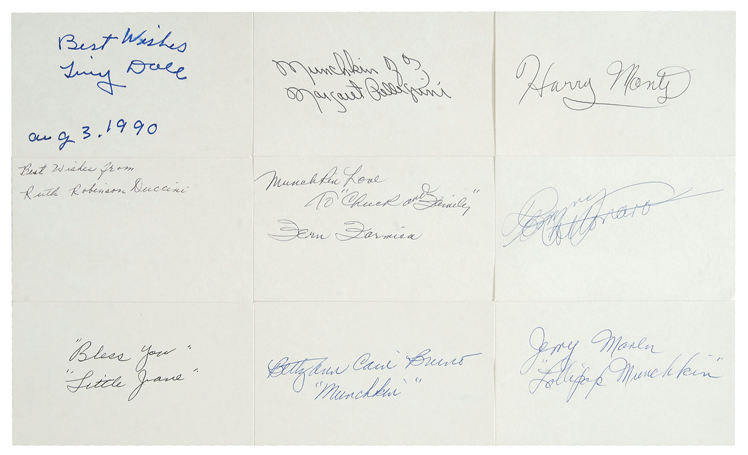 Best Wishes
Tiny Doll
aug 3. 1990
Munchkin of OZ
Margaret Pellegrini
Harry Monty
Best Wishes from
Ruth Robinson Duccini
Munchkin Love
To "Chuck and Family"
Fern Formica
Tommy
Cottonaro
"Bless You"
"Little Jeane"
Betty Ann Cain Bruno
"Munchkin"
Jerry Maren
"Lollipop Munchkin"